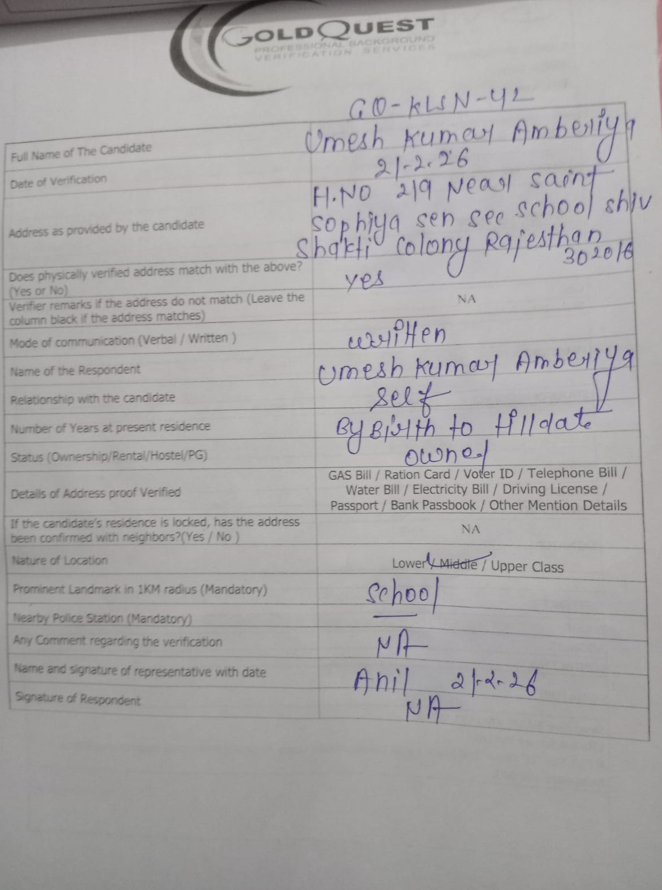 GOLDQUEST
PROFESSIONAL BACKGROUND
VERIFICATION SERVICES
GQ-KLSN-42
Full Name of The Candidate Umesh Kumar Amberiya
Date of Verification 21-2-26
Address as provided by the candidate H.NO 219 Near saint
sophiya sen sec school shiv
Shakti Colony Rajesthan
302016
Does physically verified address match with the above?
(Yes or No) yes
Verifier remarks if the address do not match (Leave the
column black if the address matches) NA
Mode of communication (Verbal / Written ) written
Name of the Respondent Umesh Kumar Amberiya
Relationship with the candidate Self
Number of Years at present residence By Birth to Tilldate
Status (Ownership/Rental/Hostel/PG) owner
Details of Address proof Verified GAS Bill / Ration Card / Voter ID / Telephone Bill /
Water Bill / Electricity Bill / Driving License /
Passport / Bank Passbook / Other Mention Details
If the candidate's residence is locked, has the address
been confirmed with neighbors?(Yes / No ) NA
Nature of Location Lower / Middle / Upper Class
Prominent Landmark in 1KM radius (Mandatory) school
Nearby Police Station (Mandatory) —
Any Comment regarding the verification NA
Name and signature of representative with date Anil 21-2-26
Signature of Respondent NA